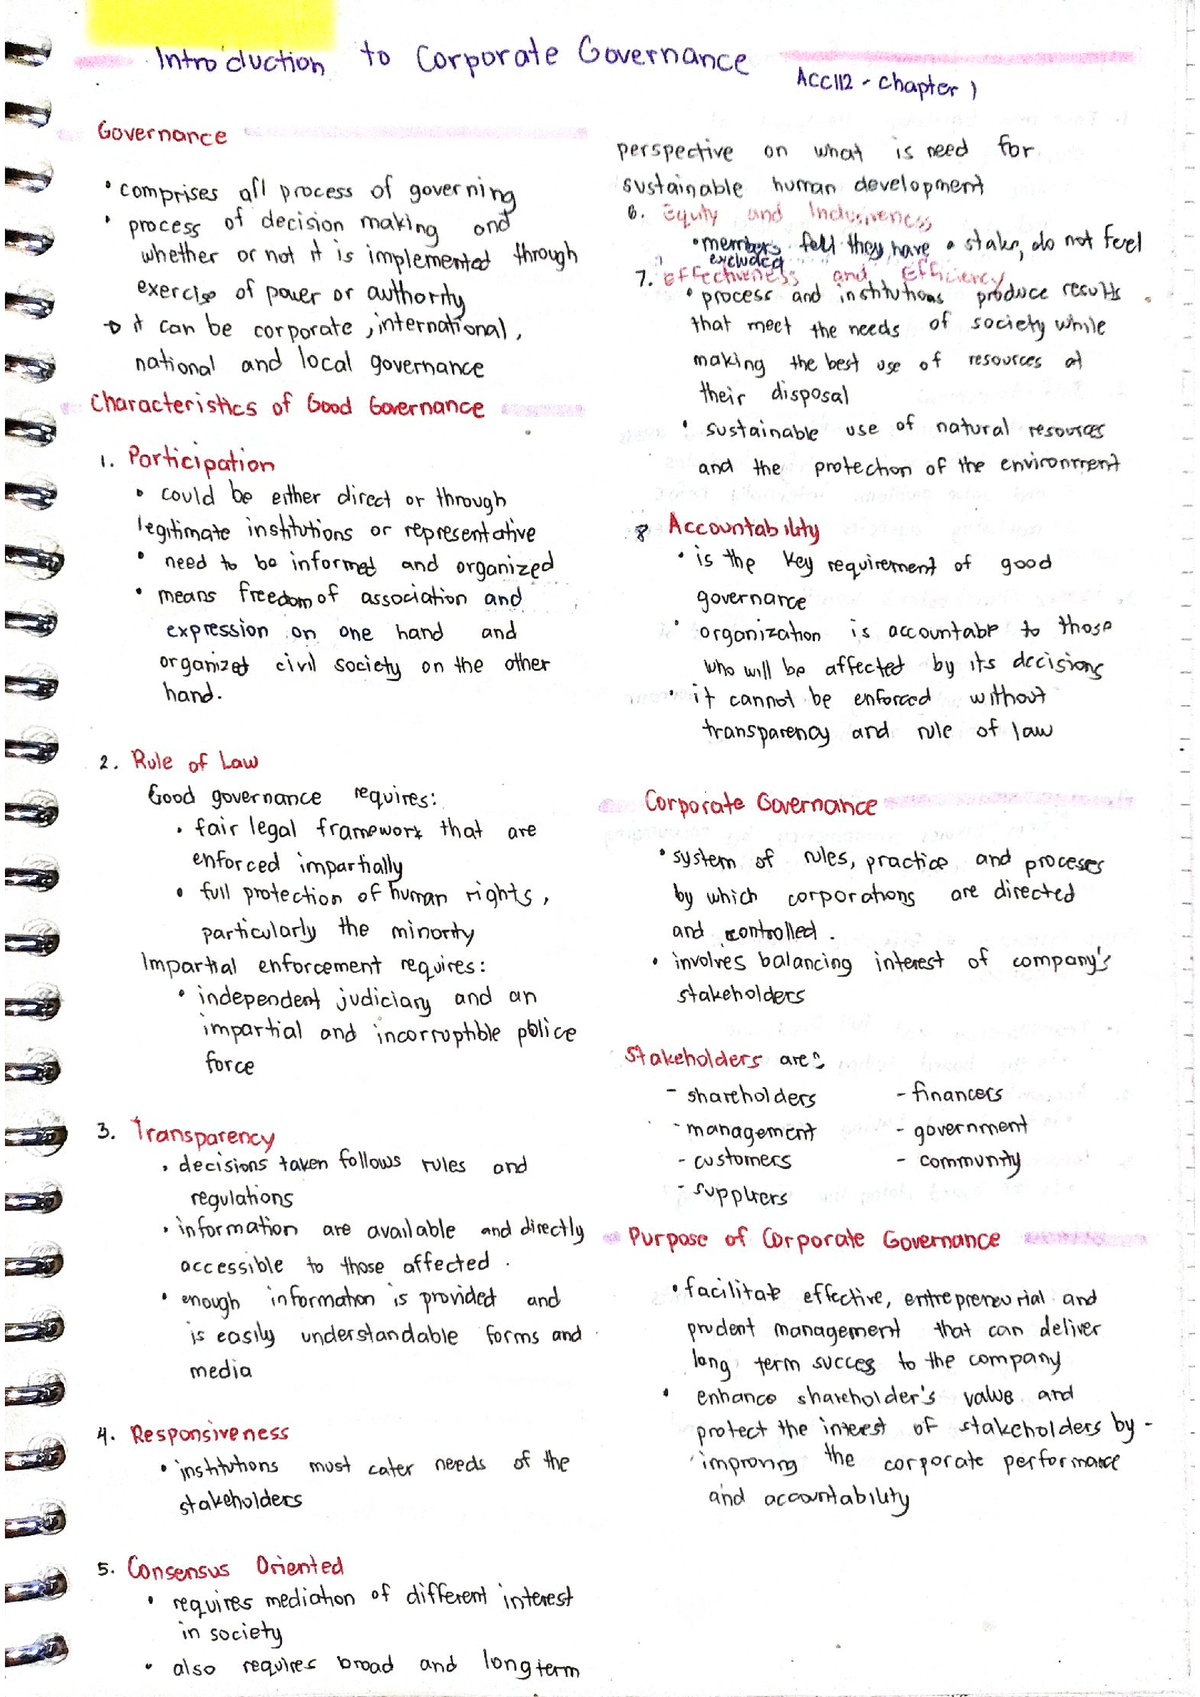 Introduction to Corporate Governance
ACC112 - Chapter 1
Governance
• comprises all process of governing
• process of decision making and
whether or not it is implemented through
exercise of power or authority
→ it can be corporate, international,
national and local governance
Characteristics of Good Governance
1. Participation
• could be either direct or through
legitimate institutions or representative
• need to be informed and organized
• means freedom of association and
expression on one hand and
organized civil society on the other
hand.
2. Rule of Law
Good governance requires:
• fair legal framework that are
enforced impartially
• full protection of human rights,
particularly the minority
Impartial enforcement requires:
• independent judiciary and an
impartial and incorruptible police
force
3. Transparency
• decisions taken follows rules and
regulations
• information are available and directly
accessible to those affected.
• enough information is provided and
is easily understandable forms and
media
4. Responsiveness
• institutions must cater needs of the
stakeholders
5. Consensus Oriented
• requires mediation of different interest
in society
• also requires broad and long term
perspective on what is need for
sustainable human development
6. Equity and Inclusiveness
• members fell they have a stake, do not feel
excluded
7. Effectiveness and Efficiency
• process and institutions produce results
that meet the needs of society while
making the best use of resources at
their disposal
• sustainable use of natural resources
and the protection of the environment
8 Accountability
• is the key requirement of good
governance
• organization is accountable to those
who will be affected by its decisions
• it cannot be enforced without
transparency and rule of law
Corporate Governance
• system of rules, practice and proceses
by which corporations are directed
and controlled.
• involves balancing interest of company's
stakeholders
Stakeholders are:
- shareholders - financers
- management - government
- customers - community
- suppliers
Purpose of Corporate Governance
• facilitate effective, entrepreneurial and
prudent management that can deliver
long term succes to the company
• enhance shareholder's value and
protect the interest of stakeholders by -
improving the corporate performance
and accountability